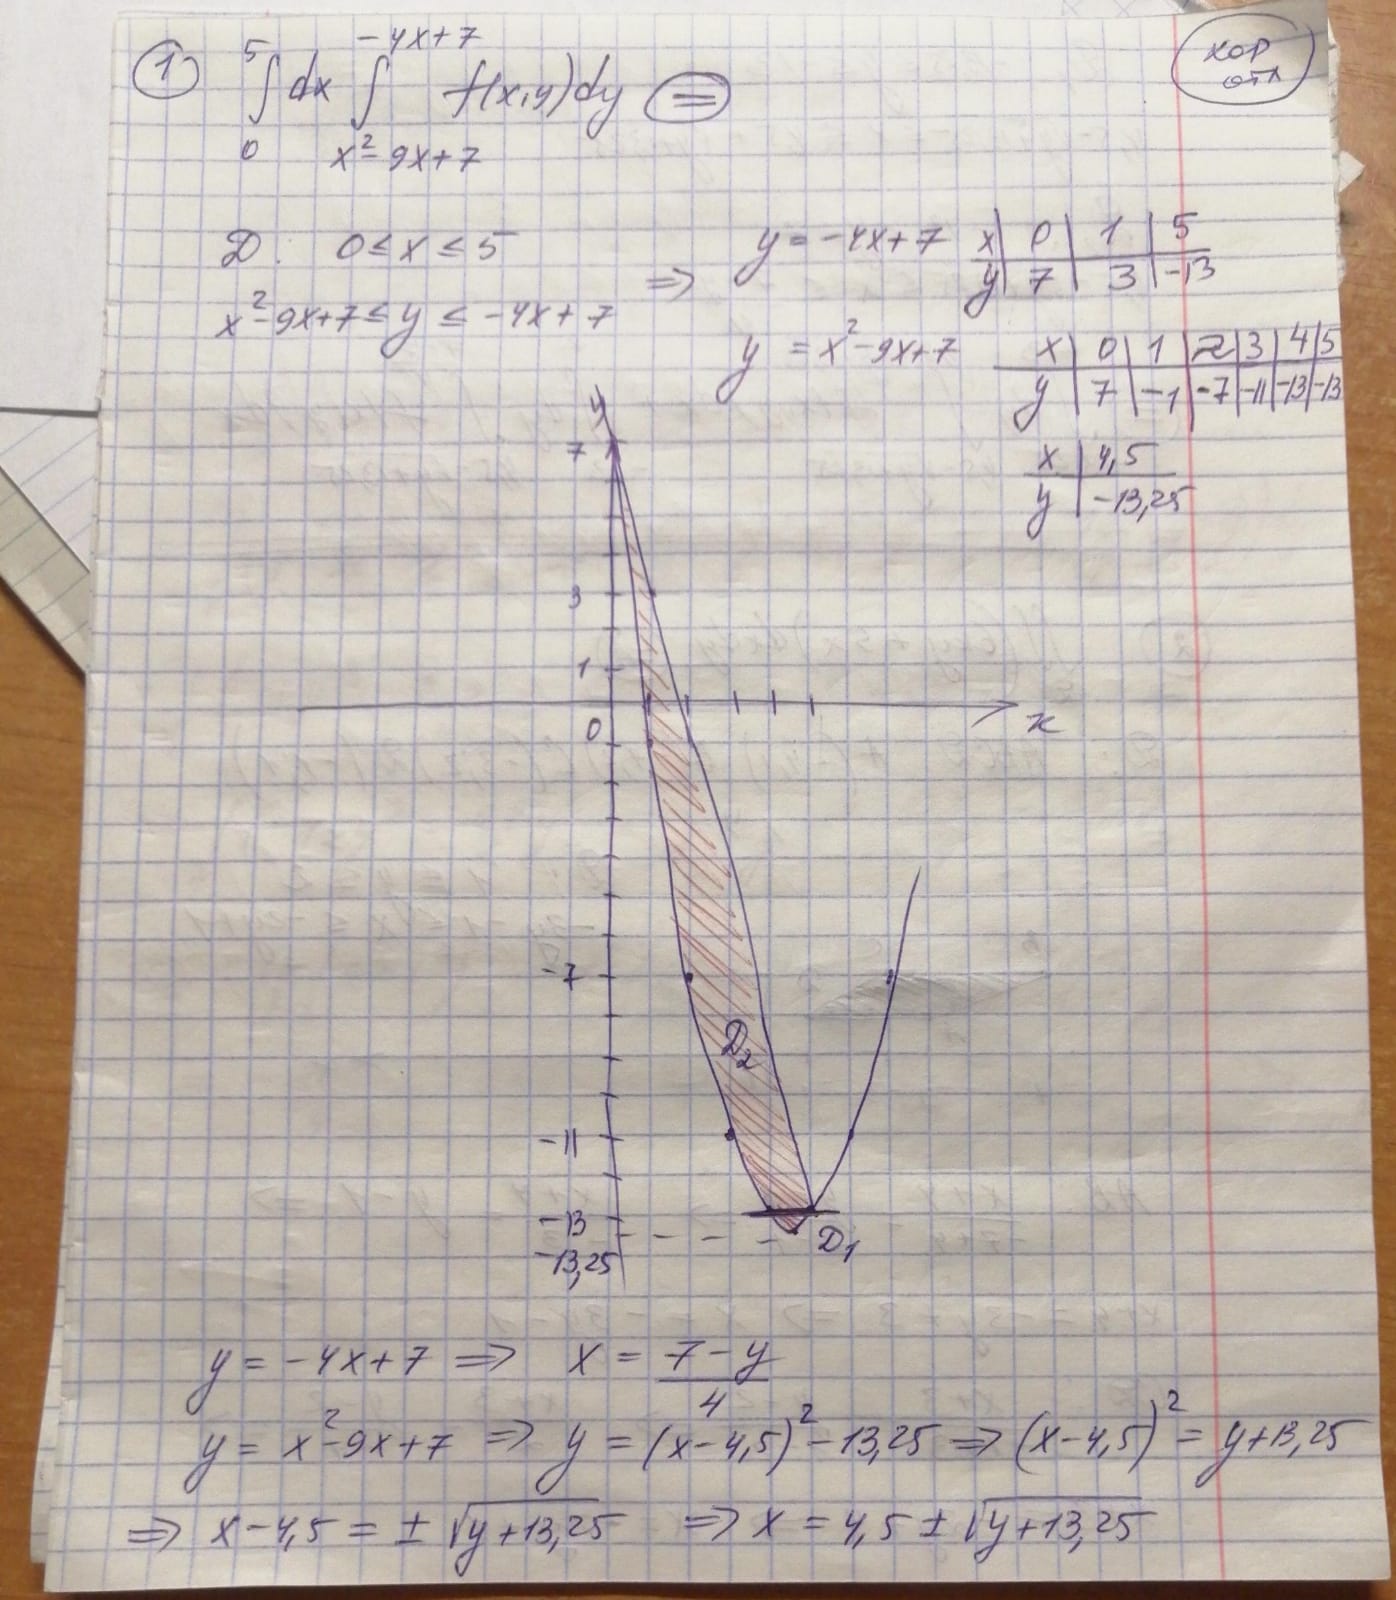 ① ∫₀⁵ dx ∫_{x²-9x+7}^{-4x+7} f(x,y)dy =
хор
отл
D: 0≤x≤5
x²-9x+7≤y≤-4x+7
⇒ y = -4x+7
x | 0 | 1 | 5
y | 7 | 3 | -13
y = x²-9x+7
x | 0 | 1 | 2 | 3 | 4 | 5
y | 7 | -1 | -7 | -11 | -13 | -13
x | 4,5
y | -13,25
y
7
3
1
0
x
-7
D₂
-11
-13
-13,25
D₁
y = -4x+7 ⇒ x = (7-y)/4
y = x²-9x+7 ⇒ y = (x-4,5)²-13,25 ⇒ (x-4,5)² = y+13,25
⇒ x-4,5 = ± √(y+13,25) ⇒ x = 4,5 ± √(y+13,25)